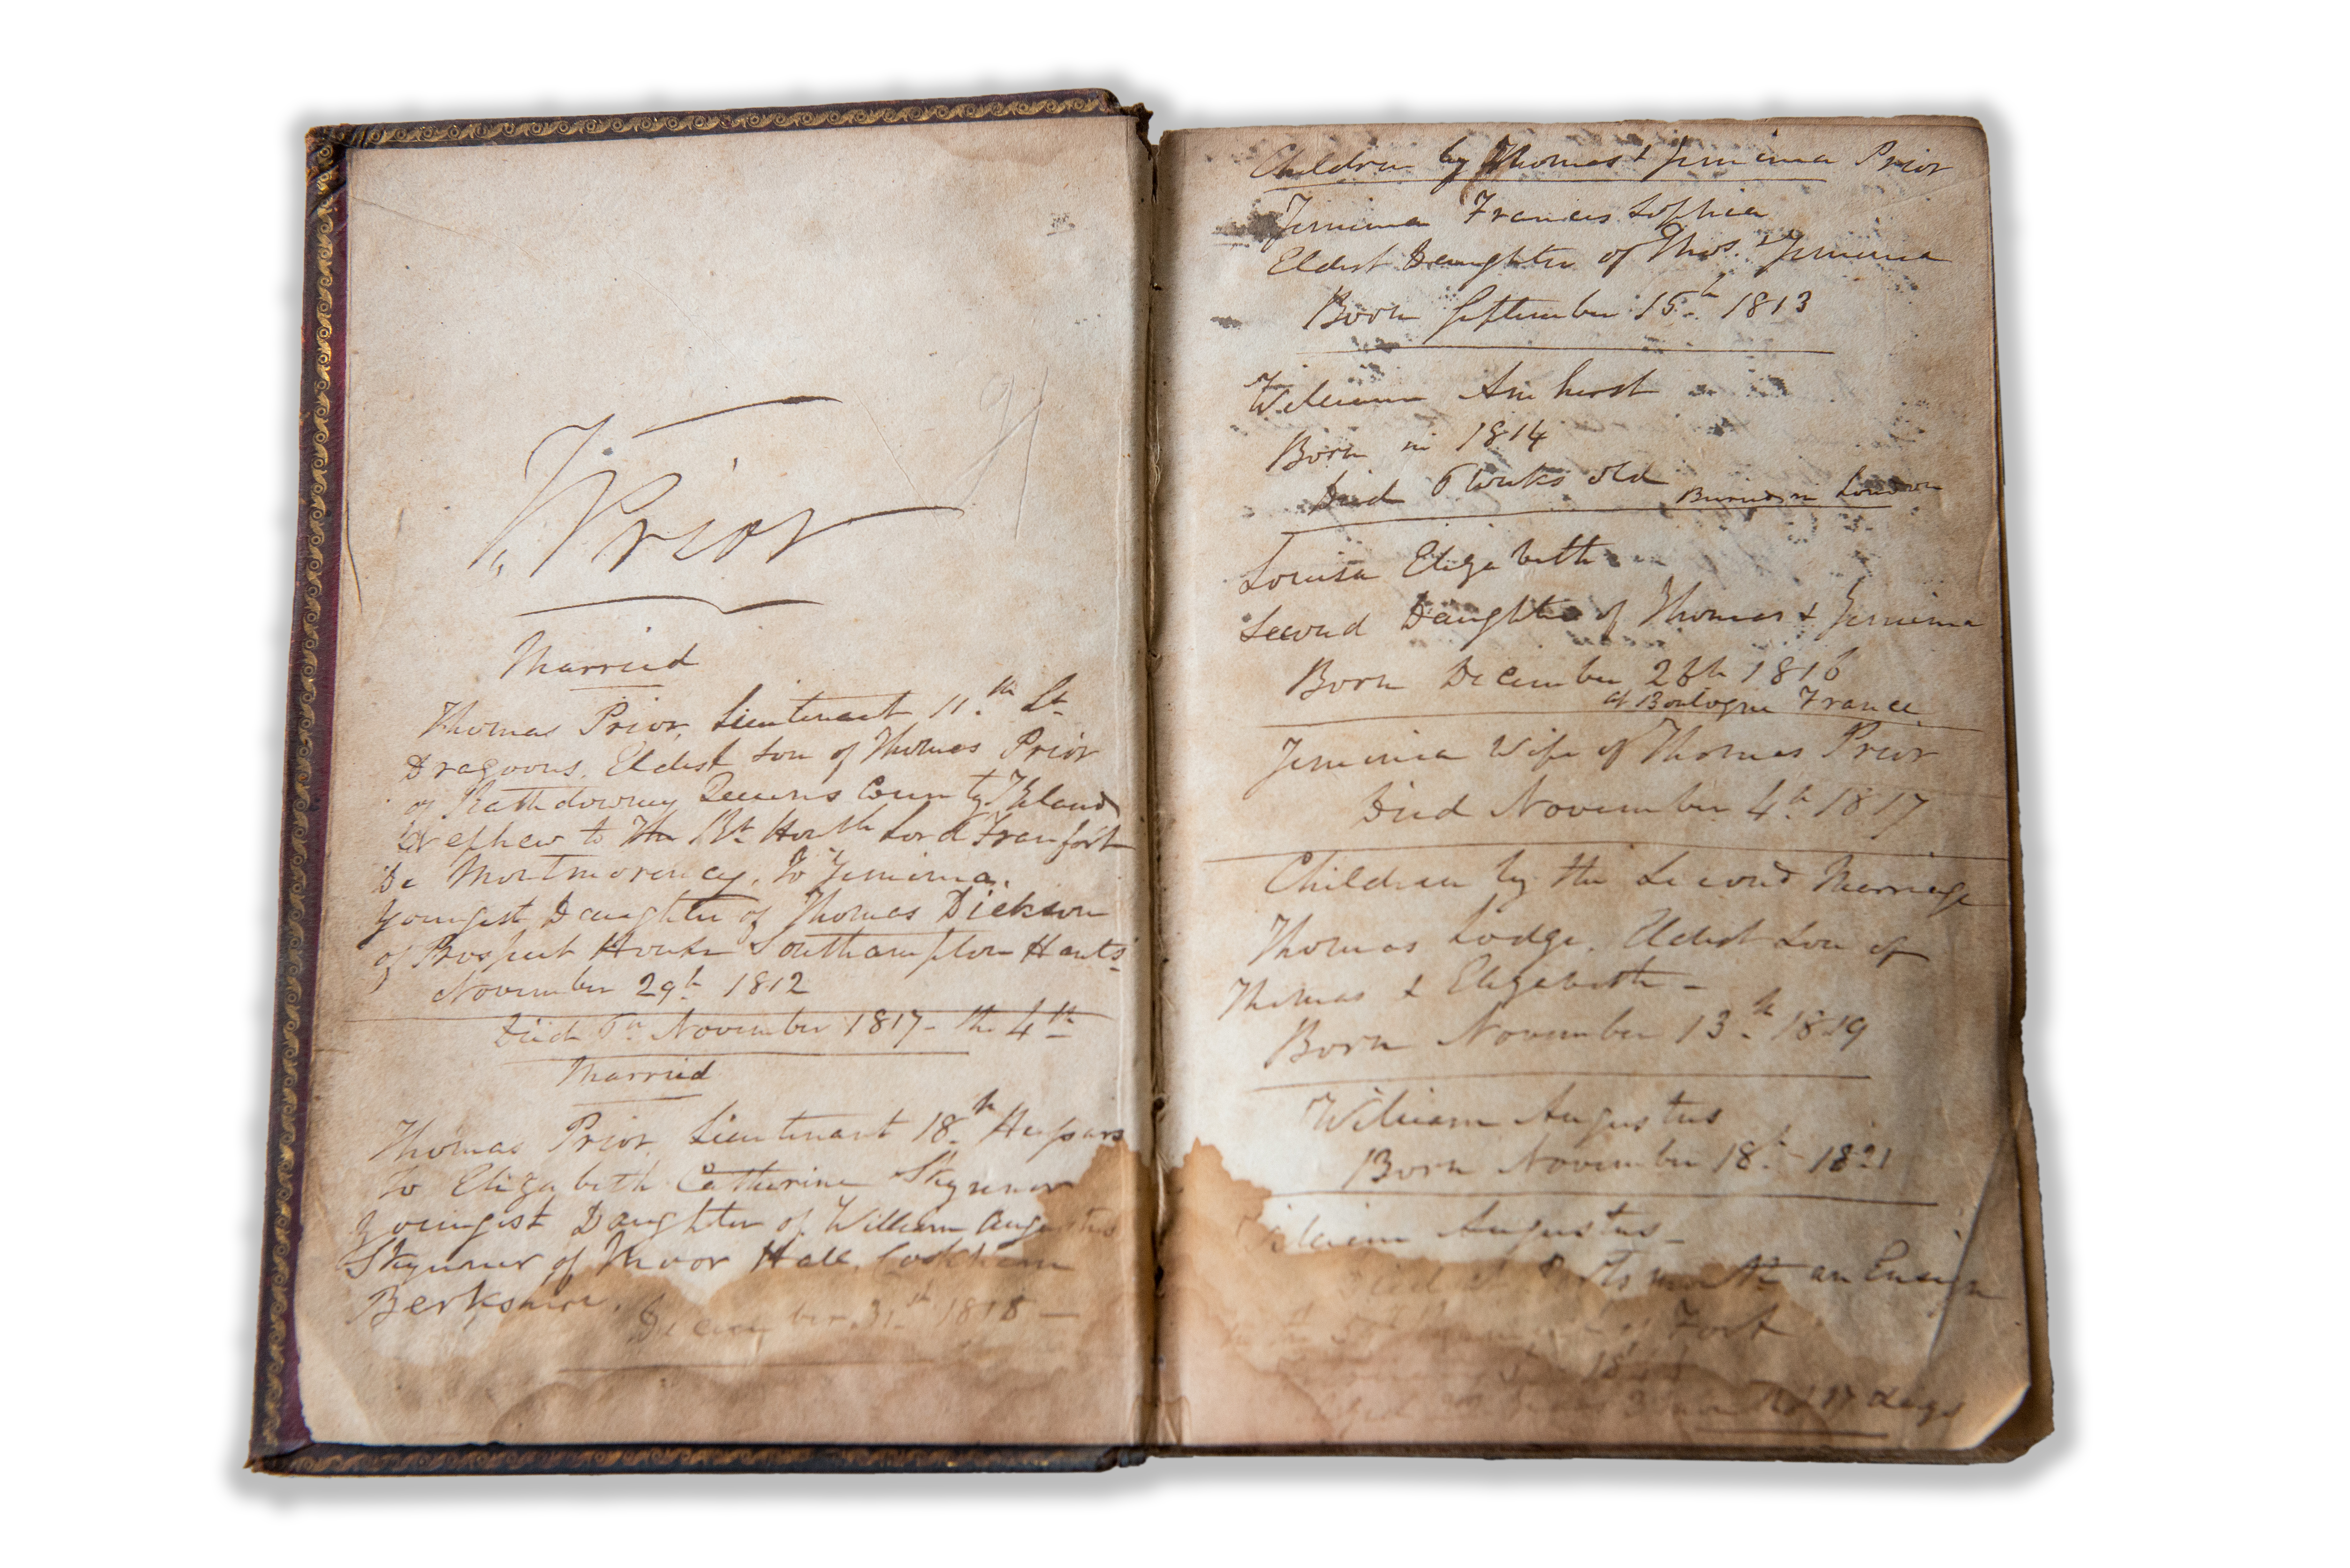 T Prior
Married
Thomas Prior, Lieutenant 11.th Lt
Dragoons. Eldest Son of Thomas Prior
of Rathdowney Queens County Ireland
Nephew to The Rt Honble Lord Frankfort
De Montmorency. To Jemima.
Youngest Daughter of Thomas Dickson
of Prospect House Southampton Hants
November 29th 1812
Died November 1817 - the 4th
Married
Thomas Prior, Lieutenant 18.th Hussars
To Elizabeth Catherine Skynner
Youngest Daughter of William Augustus
Skynner of Moor Hall, Cookham
Berkshire.
December 31st 1818 —
Children by Thomas & Jemima Prior
Jemima Frances Sophia
Eldest Daughter of Thos. & Jemima
Born September 15th 1813
William Amherst
Born in 1814
Died 6 weeks old
Buried in London
Louisa Elizabeth
Second Daughter of Thomas & Jemima
Born December 28th 1816
at Boulogne France
Jemima Wife of Thomas Prior
Died November 4th 1817
Children by the Second Marriage
Thomas Lodge. Eldest Son of
Thomas & Elizabeth -
Born November 13th 1819
William Augustus
Born November 18th - 1821
William Augustus -
Died at an Ensign
Foot
days